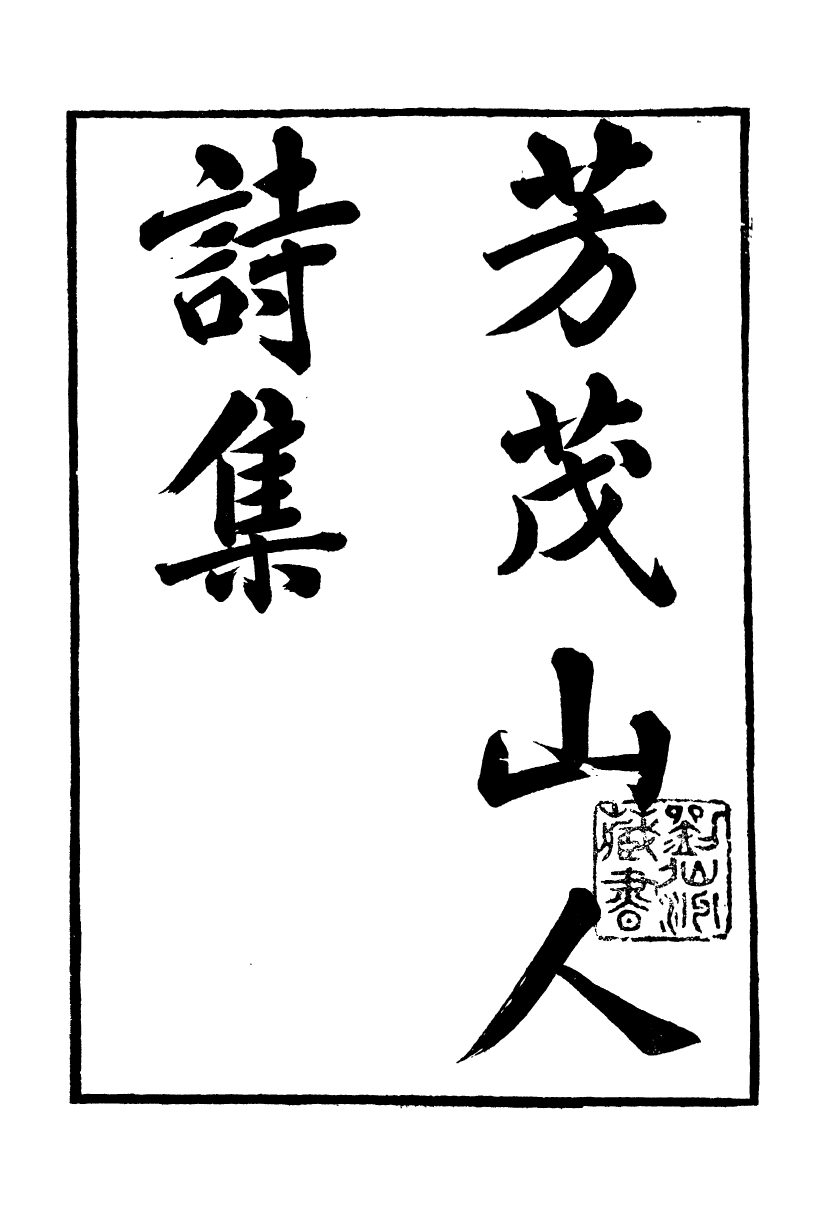 芳茂山人
詩集
劉仙洲
藏書